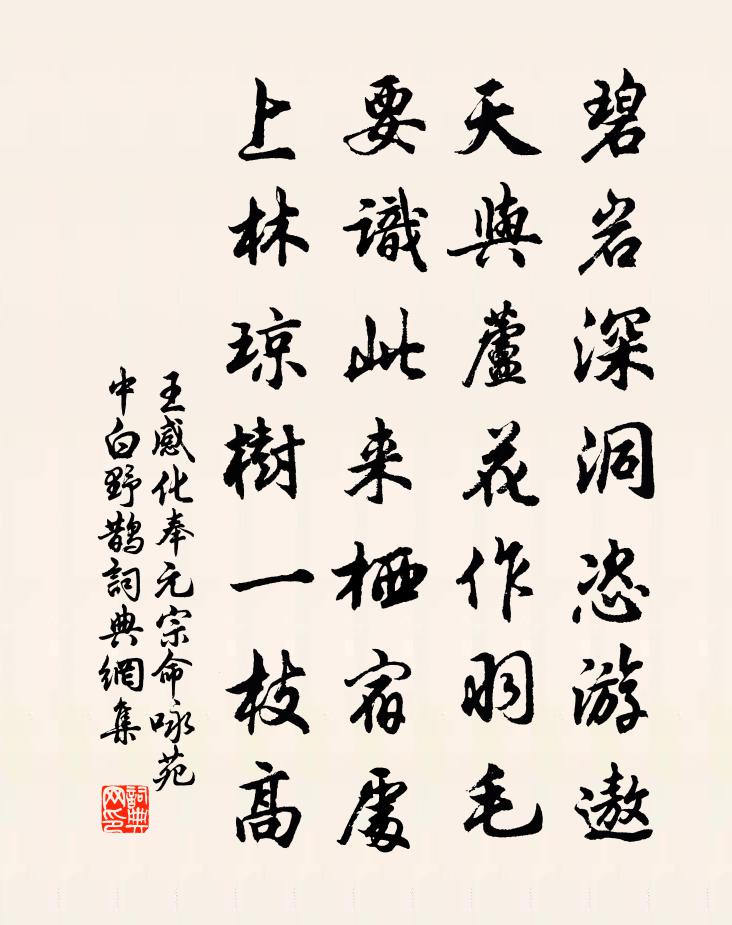 碧岩深洞恣游遨
天與蘆花作羽毛
要識此来栖宿處
上林琼樹一枝高
王感化奉元宗命咏苑
中白野鹊詞典網集
詞典网印